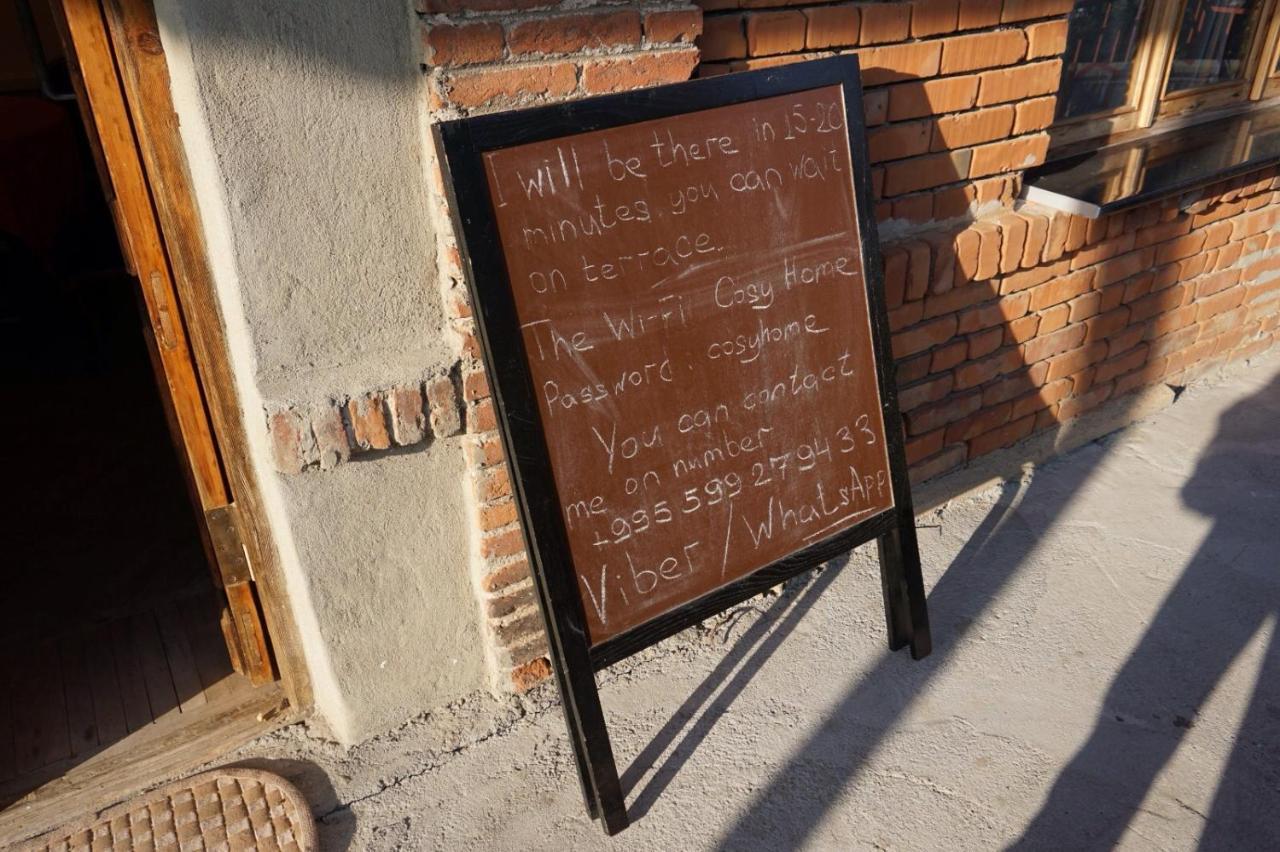 I will be there in 15-20
minutes you can wait
on terrace.
The Wi-Fi Cosy Home
Password: cosyhome
You can contact
me on number
+995 599 279433
Viber / WhatsApp